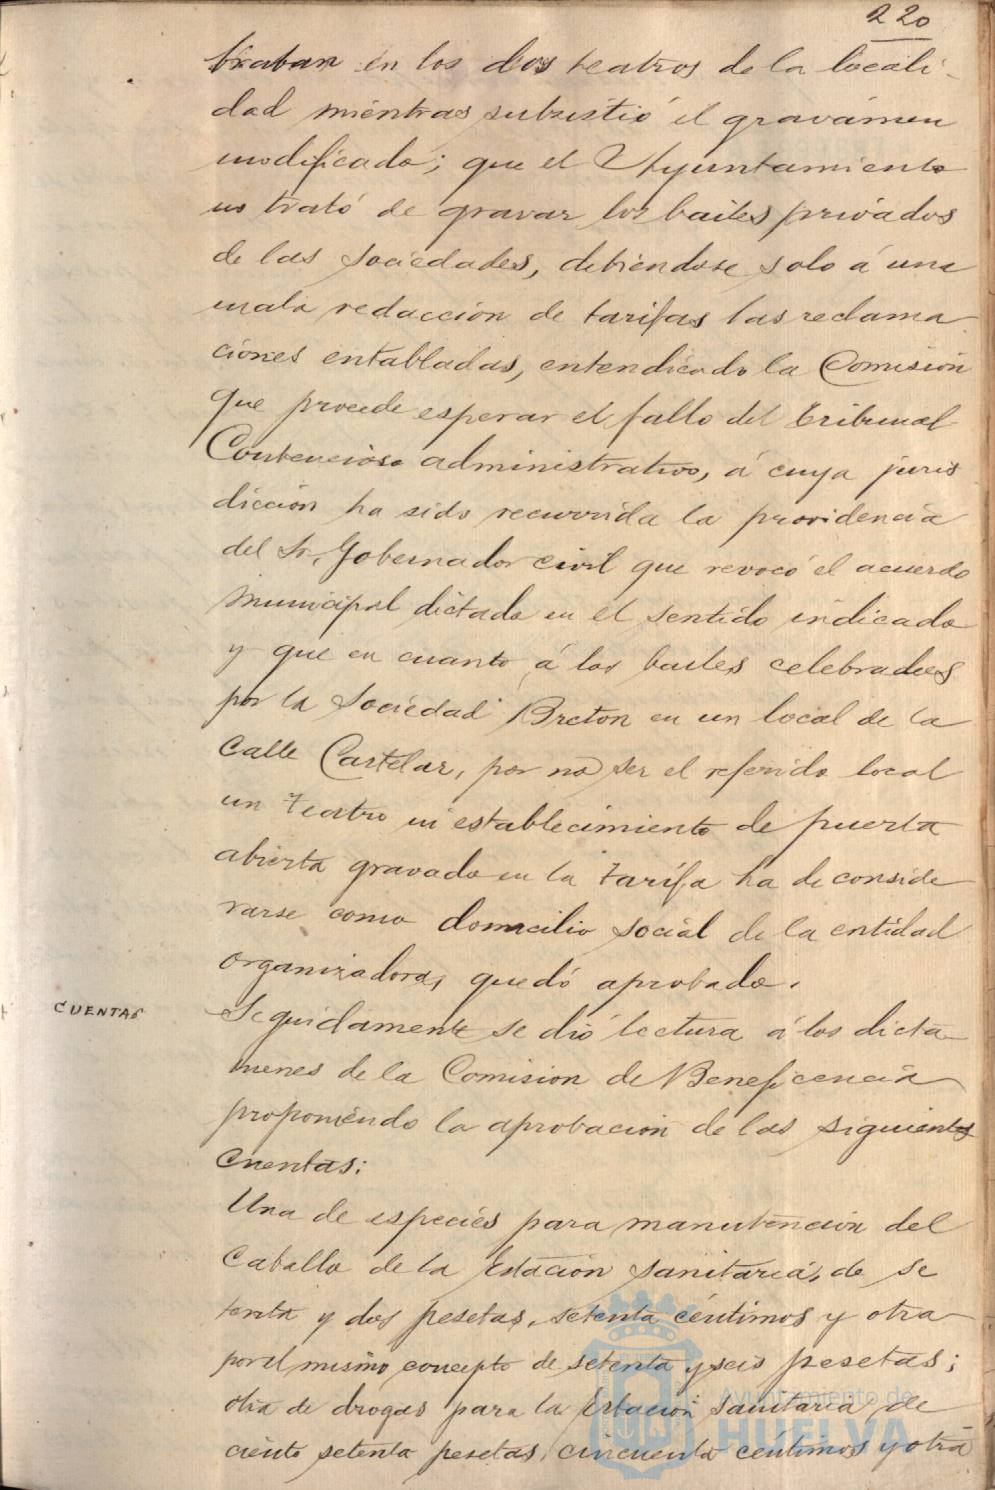 220
braban en los dos teatros de la locali-
dad mientras subsistió el gravámen
modificado; que el Ayuntamiento
no trató de gravar los bailes privados
de las sociedades, debiéndose solo á una
mala redacción de tarifas las reclama
ciones entabladas, entendiendo la Comisión
que procede esperar el fallo del tribunal
Contencioso administrativo, á cuya juris
dicción ha sido recurrida la providencia
del Sr. Gobernador civil que revocó el acuerdo
municipal dictado en el sentido indicado
y que en cuanto á los bailes celebrados
por la Sociedad Breton en un local de la
Calle Castelar, por no ser el referido local
un teatro ni establecimiento de puerta
abierta gravado en la tarifa ha de conside
rarse como domicilio social de la entidad
organizadora, quedó aprobado.
CUENTAS
Seguidamente se dió lectura á los dicta
menes de la Comision de Beneficencia
proponiendo la aprobacion de las siguientes
Cuentas:
Una de especies para manutencion del
Caballo de la Estación sanitaria, de se
tenta y dos pesetas, setenta céntimos y otra
por el mismo concepto de setenta y seis pesetas;
otra de drogas para la Estacion sanitaria, de
ciento setenta pesetas, cincuenta céntimos y otra
Ayuntamiento de
HUELVA